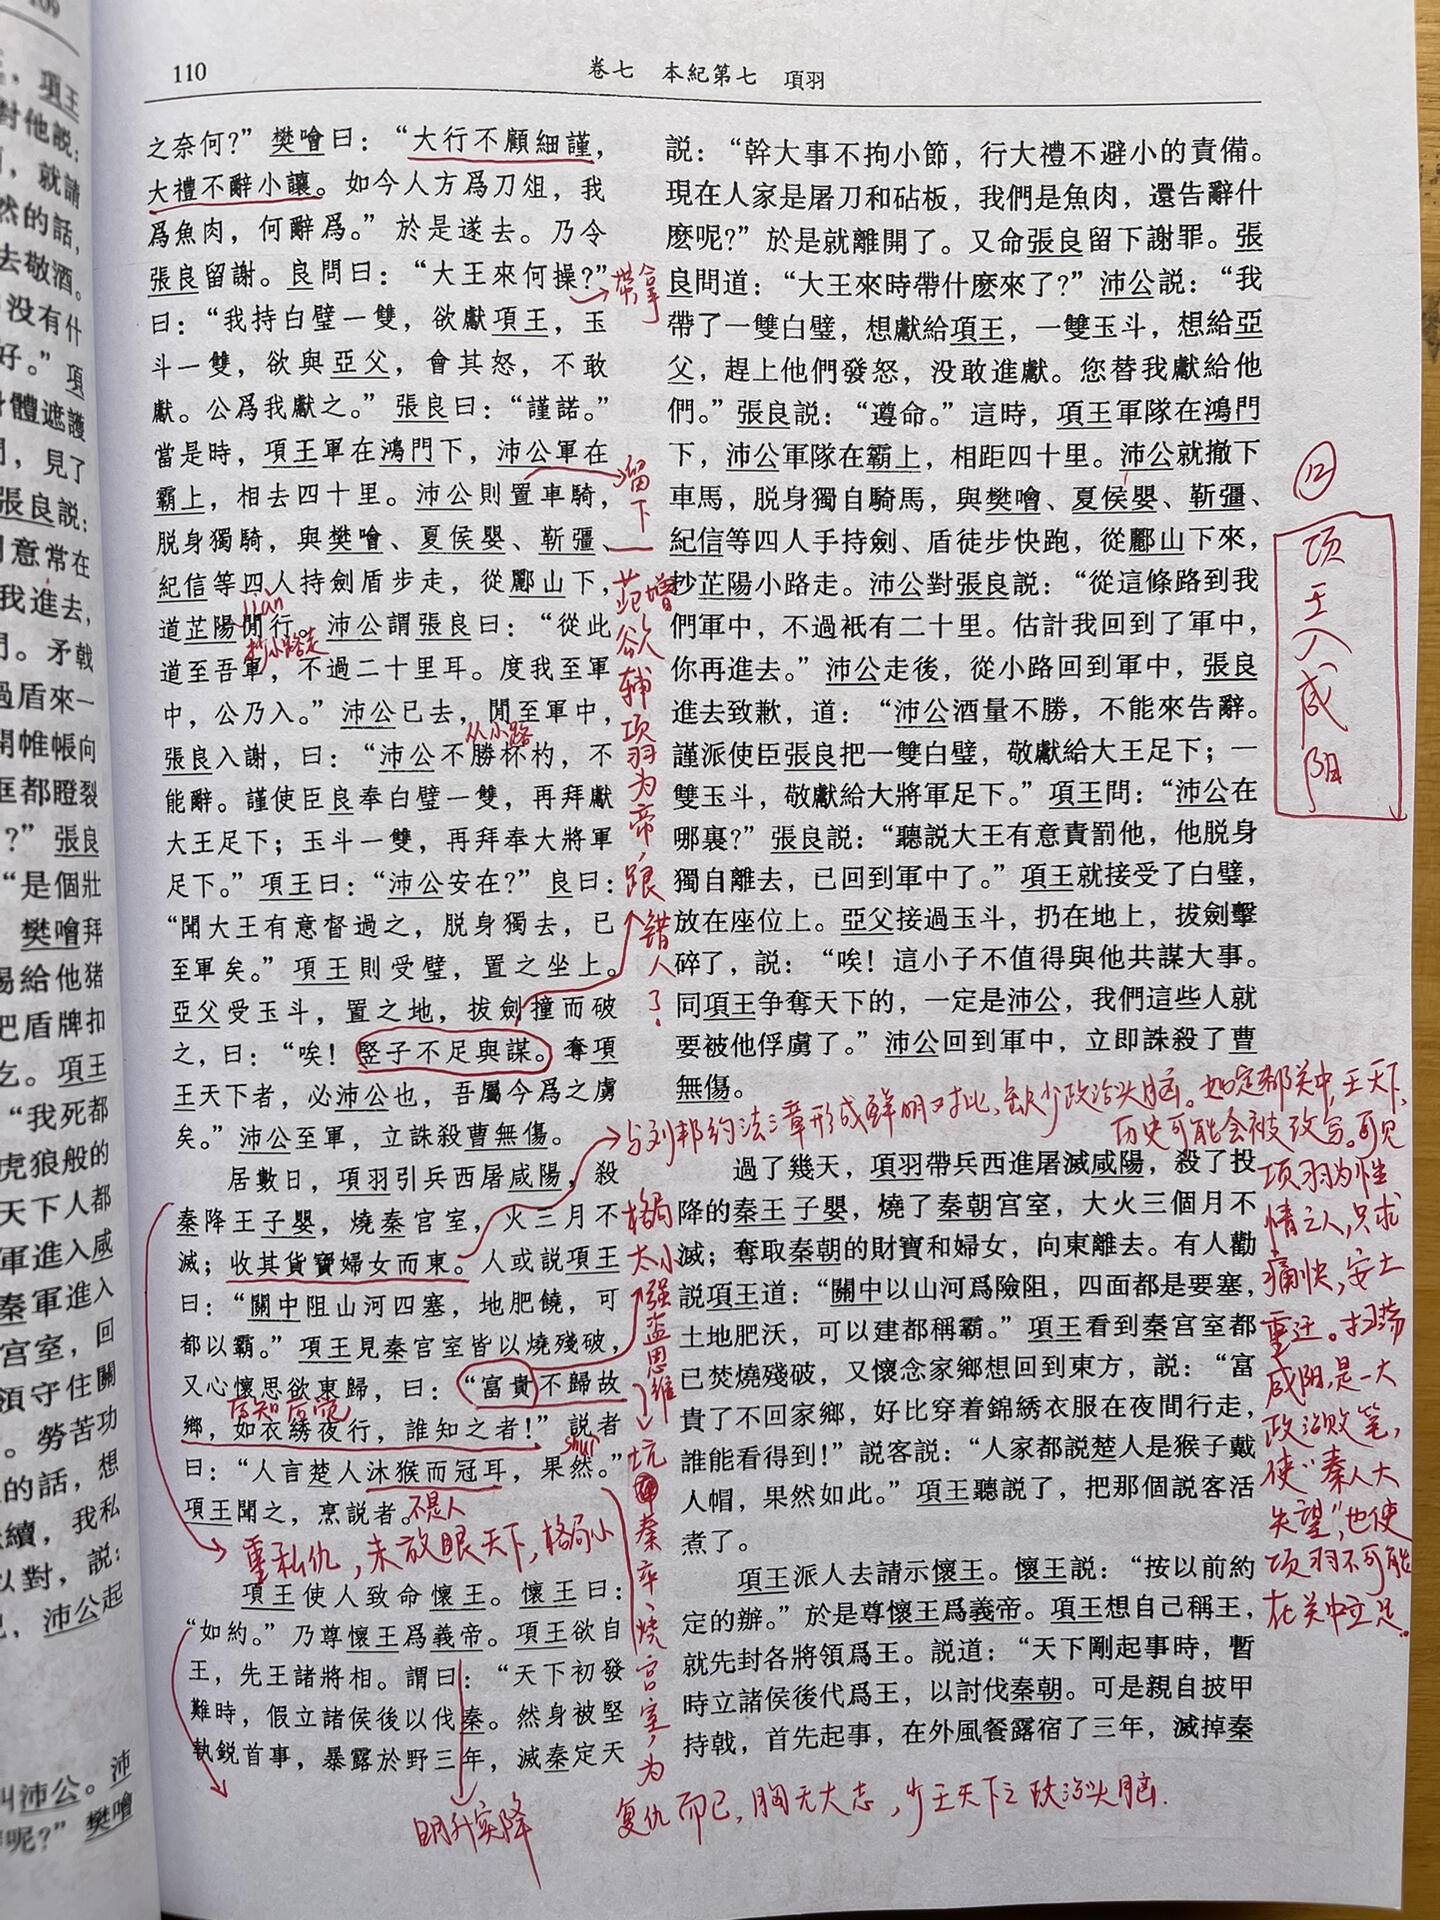 110
卷七　本紀第七　項羽
之奈何?”樊噲曰：“大行不顧細謹，
大禮不辭小讓。如今人方爲刀俎，我
爲魚肉，何辭爲。”於是遂去。乃令
張良留謝。良問曰：“大王來何操?”
曰：“我持白璧一雙，欲獻項王，玉
斗一雙，欲與亞父，會其怒，不敢
獻。公爲我獻之。”張良曰：“謹諾。”
當是時，項王軍在鴻門下，沛公軍在
霸上，相去四十里。沛公則置車騎，
脱身獨騎，與樊噲、夏侯嬰、靳彊、
紀信等四人持劍盾步走，從酈山下，
道芷陽閒行。沛公謂張良曰：“從此
道至吾軍，不過二十里耳。度我至軍
中，公乃入。”沛公已去，閒至軍中，
張良入謝，曰：“沛公不勝杯杓，不
能辭。謹使臣良奉白璧一雙，再拜獻
大王足下；玉斗一雙，再拜奉大將軍
足下。”項王曰：“沛公安在?”良曰：
“聞大王有意督過之，脱身獨去，已
至軍矣。”項王則受璧，置之坐上。
亞父受玉斗，置之地，拔劍撞而破
之，曰：“唉！竪子不足與謀。奪項
王天下者，必沛公也，吾屬今爲之虜
矣。”沛公至軍，立誅殺曹無傷。
居數日，項羽引兵西屠咸陽，殺
秦降王子嬰，燒秦宫室，火三月不
滅；收其貨寶婦女而東。人或説項王
曰：“關中阻山河四塞，地肥饒，可
都以霸。”項王見秦宫室皆以燒殘破，
又心懷思欲東歸，曰：“富貴不歸故
鄉，如衣綉夜行，誰知之者！”説者
曰：“人言楚人沐猴而冠耳，果然。”
項王聞之，烹説者。
項王使人致命懷王。懷王曰：
“如約。”乃尊懷王爲義帝。項王欲自
王，先王諸將相。謂曰：“天下初發
難時，假立諸侯後以伐秦。然身被堅
執鋭首事，暴露於野三年，滅秦定天
説：“幹大事不拘小節，行大禮不避小的責備。
現在人家是屠刀和砧板，我們是魚肉，還告辭什
麽呢?”於是就離開了。又命張良留下謝罪。張
良問道：“大王來時帶什麽來了?”沛公説：“我
帶了一雙白璧，想獻給項王，一雙玉斗，想給亞
父，趕上他們發怒，没敢進獻。您替我獻給他
們。”張良説：“遵命。”這時，項王軍隊在鴻門
下，沛公軍隊在霸上，相距四十里。沛公就撤下
車馬，脱身獨自騎馬，與樊噲、夏侯嬰、靳彊、
紀信等四人手持劍、盾徒步快跑，從酈山下來，
抄芷陽小路走。沛公對張良説：“從這條路到我
們軍中，不過衹有二十里。估計我回到了軍中，
你再進去。”沛公走後，從小路回到軍中，張良
進去致歉，道：“沛公酒量不勝，不能來告辭。
謹派使臣張良把一雙白璧，敬獻給大王足下；一
雙玉斗，敬獻給大將軍足下。”項王問：“沛公在
哪裏?”張良説：“聽説大王有意責罰他，他脱身
獨自離去，已回到軍中了。”項王就接受了白璧，
放在座位上。亞父接過玉斗，扔在地上，拔劍擊
碎了，説：“唉！這小子不值得與他共謀大事。
同項王争奪天下的，一定是沛公，我們這些人就
要被他俘虜了。”沛公回到軍中，立即誅殺了曹
無傷。
過了幾天，項羽帶兵西進屠滅咸陽，殺了投
降的秦王子嬰，燒了秦朝宫室，大火三個月不
滅；奪取秦朝的財寶和婦女，向東離去。有人勸
説項王道：“關中以山河爲險阻，四面都是要塞，
土地肥沃，可以建都稱霸。”項王看到秦宫室都
已焚燒殘破，又懷念家鄉想回到東方，説：“富
貴了不回家鄉，好比穿着錦綉衣服在夜間行走，
誰能看得到！”説客説：“人家都説楚人是猴子戴
人帽，果然如此。”項王聽説了，把那個説客活
煮了。
項王派人去請示懷王。懷王説：“按以前約
定的辦。”於是尊懷王爲義帝。項王想自己稱王，
就先封各將領爲王。説道：“天下剛起事時，暫
時立諸侯後代爲王，以討伐秦朝。可是親自披甲
持戟，首先起事，在外風餐露宿了三年，滅掉秦
带拿
留下
jiàn
抄小路走
从小路
范增欲辅项羽为帝，跟错人了！
⑫
项王入咸阳
与刘邦约法三章形成鲜明对比，缺少政治头脑。如定都关中，王天下，
历史可能会被改写。可见
项羽为性
情之人，只求
痛快，安土
重迁。扫荡
咸阳，是一大
政治败笔，
使“秦人大
失望”，也使
项羽不可能
在关中立足。
格局太小
强盗思维
shuì
不是人
重私仇，未放眼天下，格局小
坑秦卒、烧宫室，为
复仇而已，胸无大志，少王天下之政治头脑.
明升实降